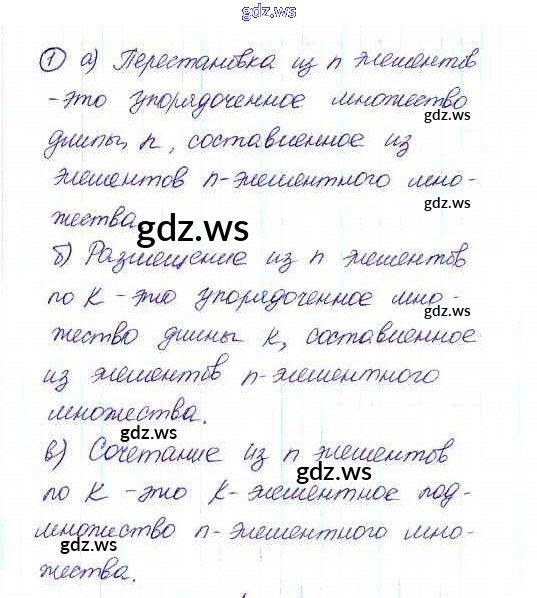 gdz.ws
1 а) Перестановка из n элементов
- это упорядоченное множество
gdz.ws
длины n, составленное из
элементов n-элементного мно-
жества.
gdz.ws
gdz.ws
б) Размещение из n элементов
по k - это упорядоченное мно-
gdz.ws
жество длины k, составленное
из элементов n-элементного
множества.
gdz.ws
в) Сочетание из n элементов
gdz.ws
по k - это k-элементное под-
множество n-элементного мно-
gdz.ws
gdz.ws
жества.